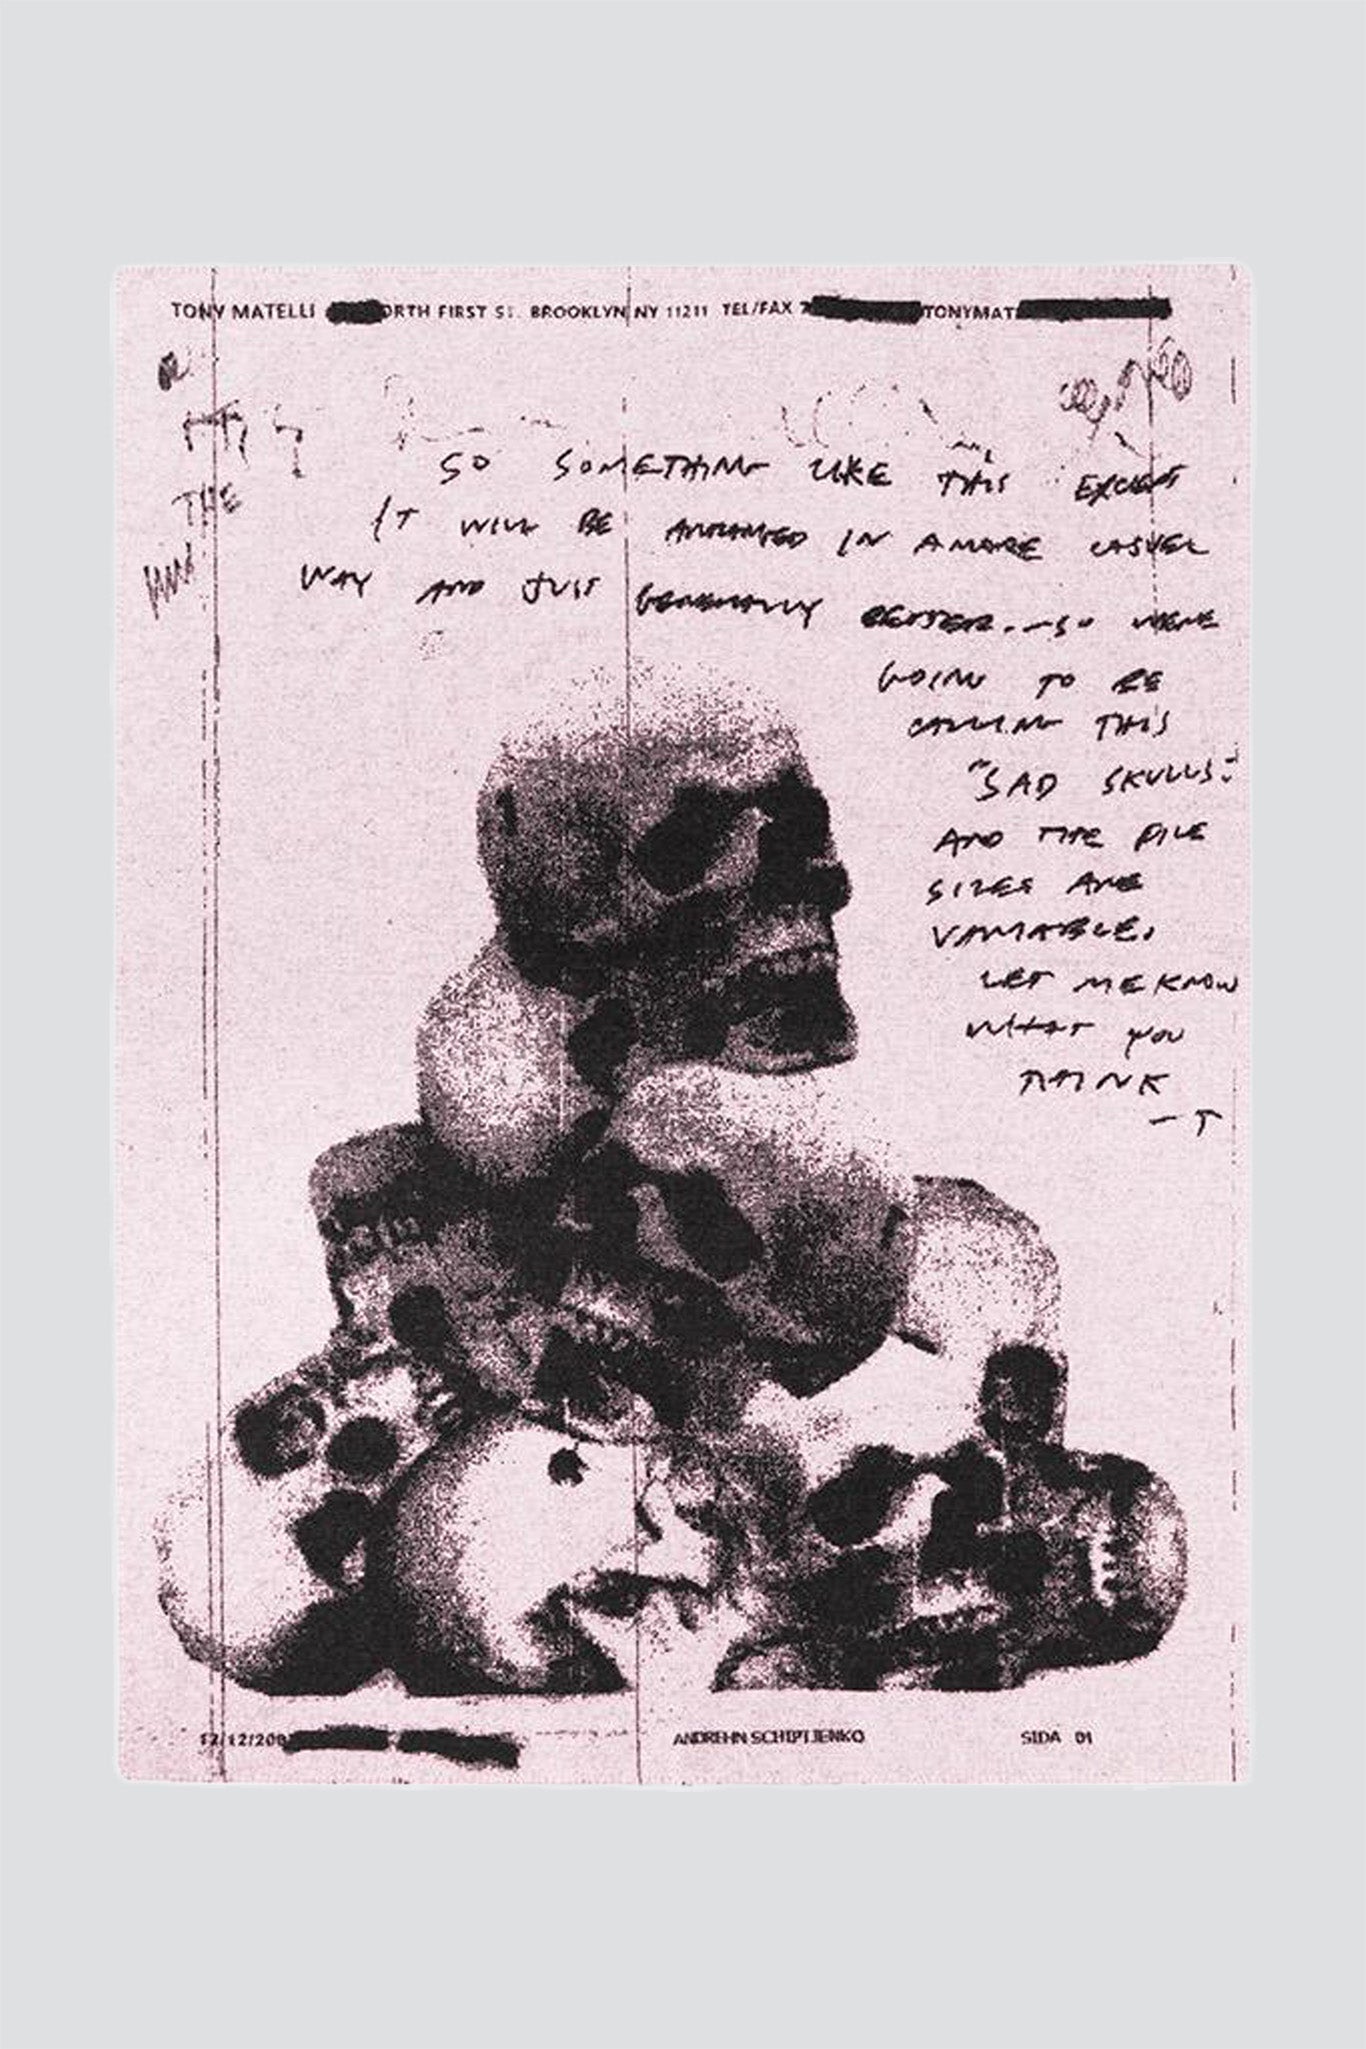 TONY MATELLI ORTH FIRST ST. BROOKLYN NY 11211 TEL/FAX 7 TONYMAT
THE
SO SOMETHING LIKE THIS EXCEPT
IT WILL BE ARRANGED IN A MORE CASUEL
WAY AND JUST GENERALLY BETTER. — SO WERE
GOING TO BE
CALLING THIS
"SAD SKULLS."
AND THE FILE
SIZES ARE
VARIABLE.
LET ME KNOW
WHAT YOU
THINK
— T
12/12/200 ANDREHN SCHIPTJENKO SIDA 01